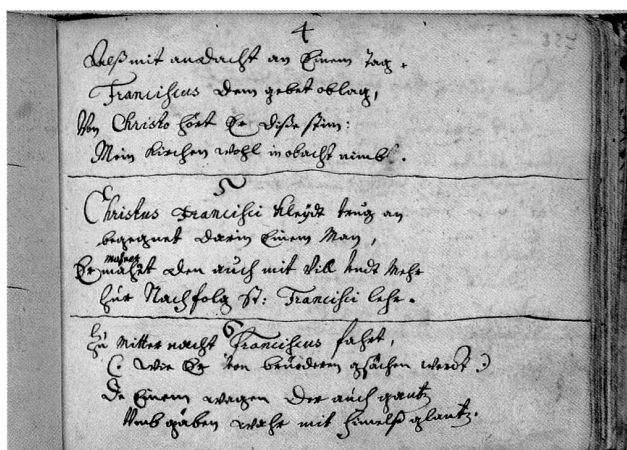 4
337
Alß mit andacht an Einem tag,
Franciscus dem gebet oblag,
Von Christo hört Er diße stim:
Mein Kirchen wohl in obacht nimb.
5
Christus Francisci Kleydt trug an
begegnet darin Einem Man,
Er den auch mit Vill undt Mehr
Zur Nachfolg St: Francisci lehr.
6
Zu Mitter nacht Franciscus fahrt,
(: wie Er von brüederen gsächen werdt :)
Einem wagen der auch gantz
Umbgäben wahr mit himelß glantz.